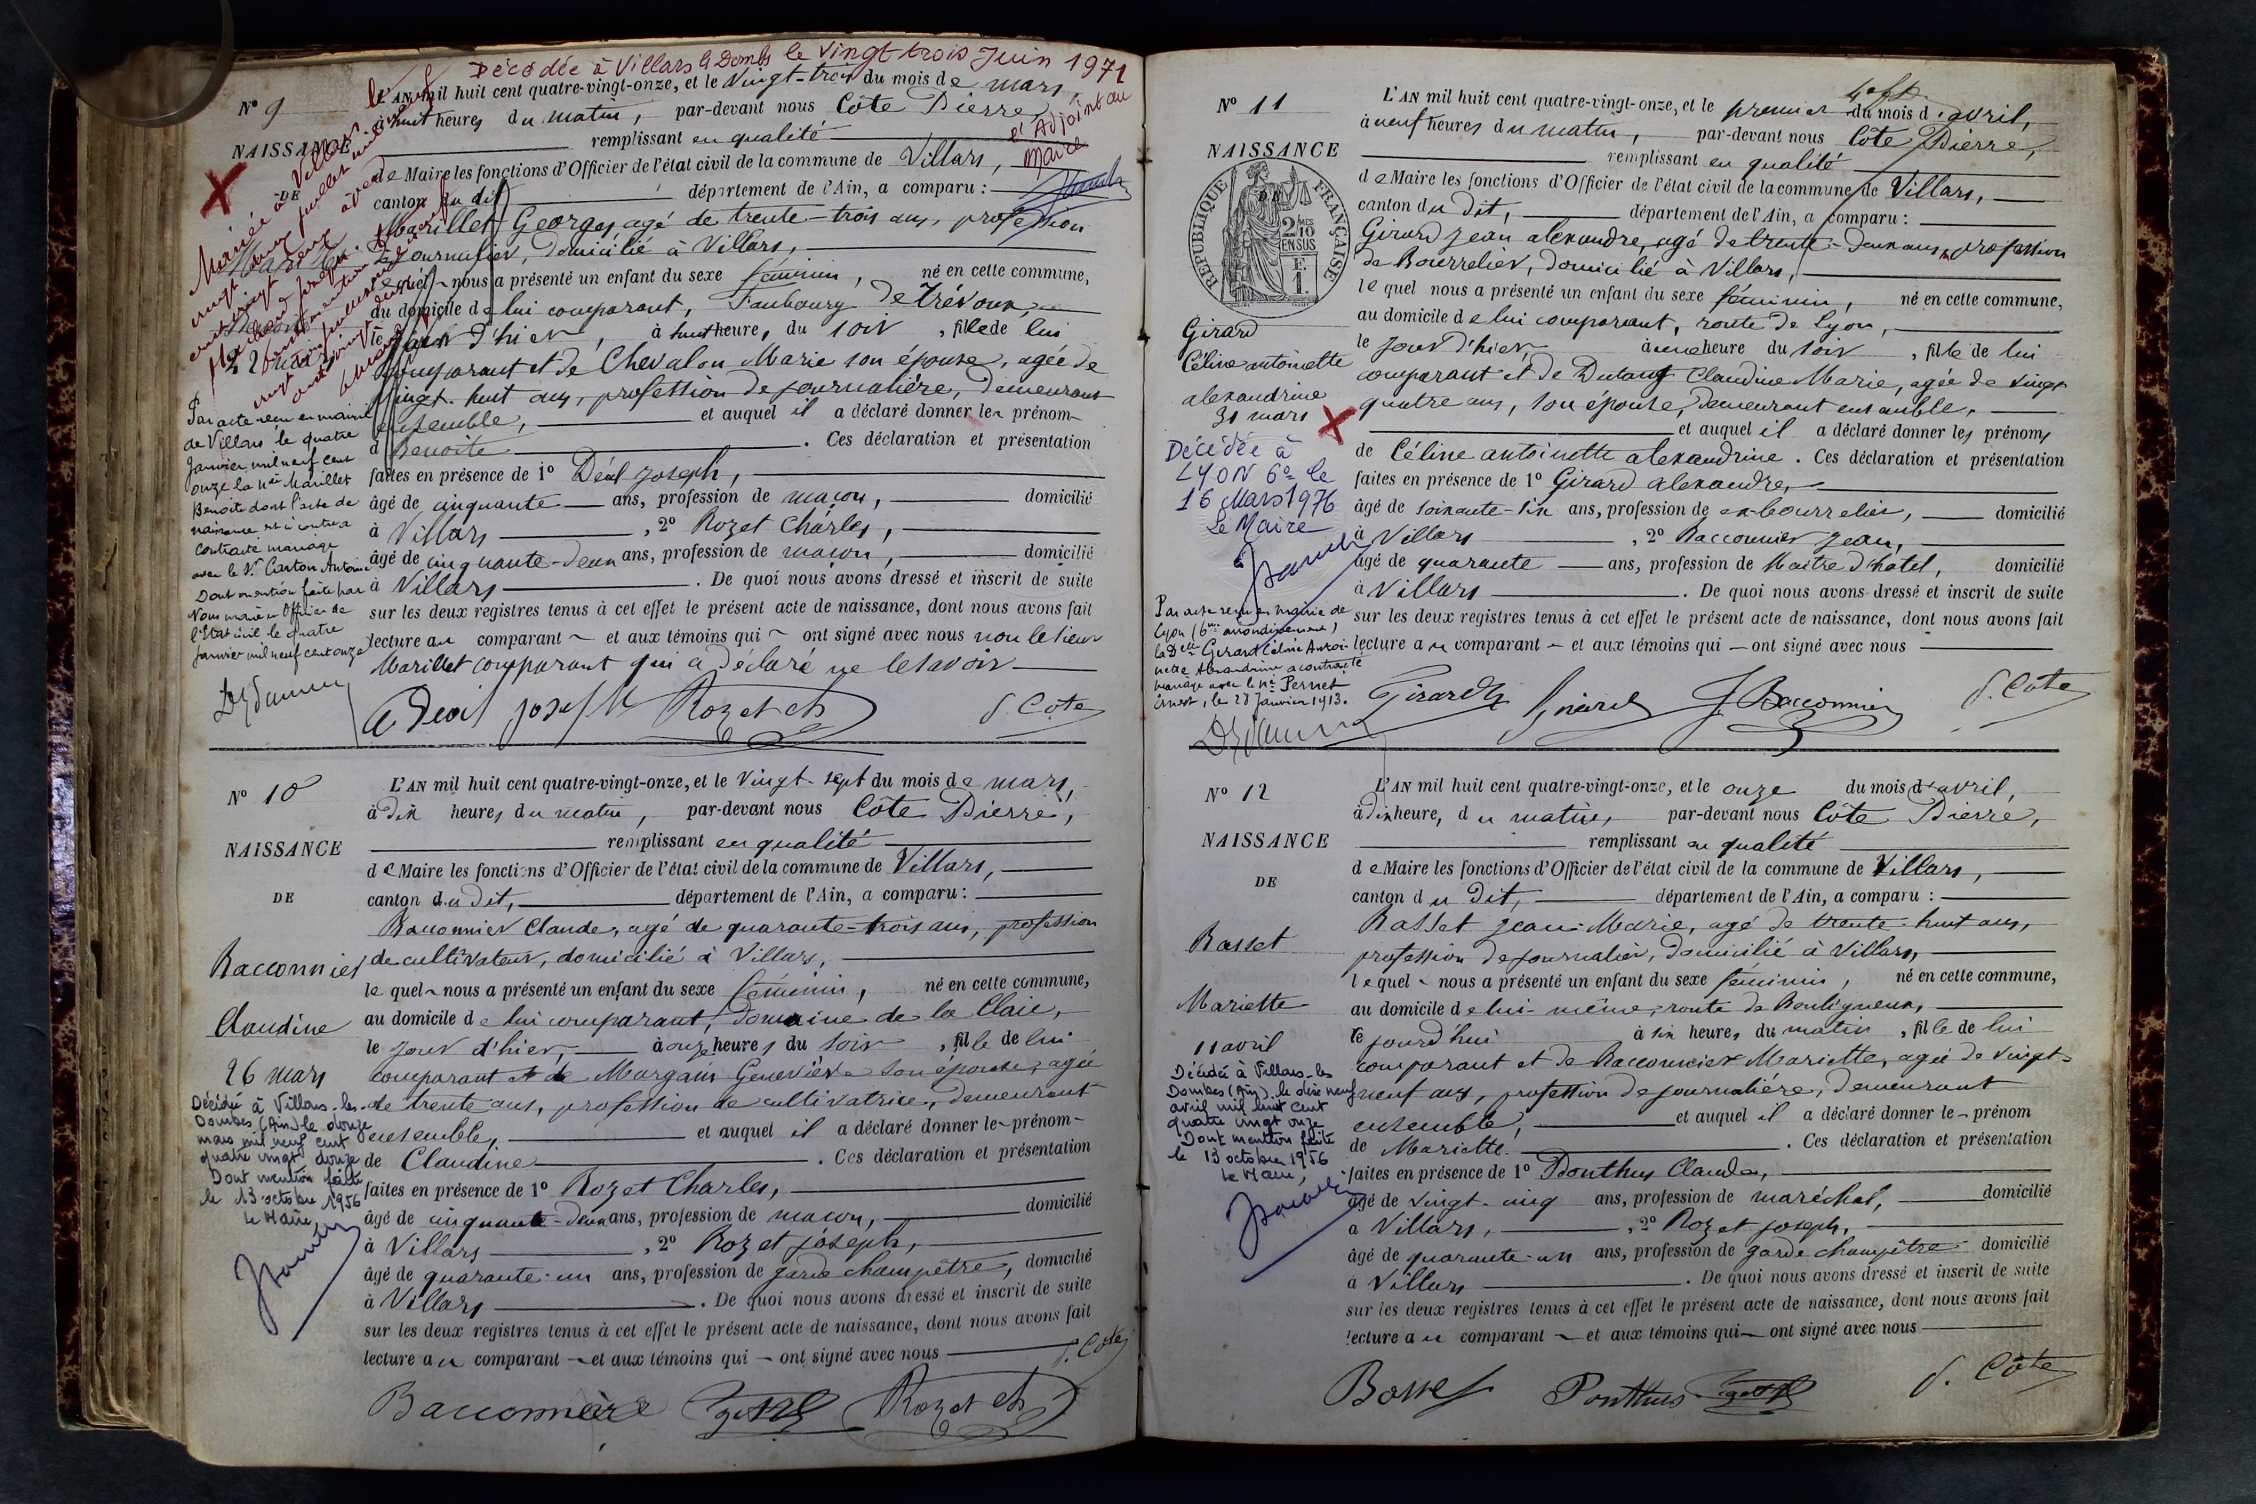 Décédée à Villars les Dombes le vingt-trois Juin 1971
L'Adjoint au
Maire
N° 9
NAISSANCE
DE
22 mars
Mariée à Villars
Par acte reçu en mairie
de Villars le quatre
Janvier mil neuf cent
onze la née Marillet
Benoite dont l'acte de
naissance est ci contre a
contracté mariage
avec le Sr Carton Antoine
Dont mention faite par
Nous maire Officier de
l'Etat civil le quatre
Janvier mil neuf cent onze
L'AN mil huit cent quatre-vingt-onze, et le vingt-trois du mois de mars,
à huit heures du matin, par-devant nous Côte Pierre,
remplissant en qualité
de Maire les fonctions d'Officier de l'état civil de la commune de Villars,
canton du dit département de l'Ain, a comparu :
Marillet Georges, agé de trente-trois ans, profession
de journalier, domicilié à Villars,
lequel nous a présenté un enfant du sexe féminin, né en cette commune,
au domicile de lui comparant, Faubourg de Trévoux,
le jour d'hier, à huit heures du soir, fille de lui
comparant et de Chevalon Marie son épouse, agée de
vingt-huit ans, profession de journalière, demeurant
ensemble, et auquel il a déclaré donner le prénom
d Benoite . Ces déclaration et présentation
faites en présence de 1° Déal Joseph,
âgé de cinquante ans, profession de maçon, domicilié
à Villars , 2° Rozet Charles,
âgé de cinquante-deux ans, profession de maçon, domicilié
à Villars . De quoi nous avons dressé et inscrit de suite
sur les deux registres tenus à cet effet le présent acte de naissance, dont nous avons fait
lecture au comparant et aux témoins qui ont signé avec nous non le sieur
Marillet comparant qui a déclaré ne le savoir
Rozet ch
P. Côte
N° 10
NAISSANCE
DE
Racconnier
Claudine
26 mars
Décédée à Villars-les-
Dombes (Ain) le douze
mars mil neuf cent
quatre vingt douze
Dont mention faite
le 13 octobre 1956
Le Maire,
L'AN mil huit cent quatre-vingt-onze, et le vingt-sept du mois de mars,
à dix heures du matin, par-devant nous Côte Pierre,
remplissant en qualité
de Maire les fonctions d'Officier de l'état civil de la commune de Villars,
canton du dit, département de l'Ain, a comparu :
Racconnier Claude, agé de quarante-trois ans, profession
de cultivateur, domicilié à Villars,
lequel nous a présenté un enfant du sexe féminin, né en cette commune,
au domicile de lui comparant, domaine de la Claie,
le jour d'hier, à onze heures du soir, fille de lui
comparant et de Morgain Geneviève son épouse, agée
de trente ans, profession de cultivatrice, demeurant
ensemble, et auquel il a déclaré donner le prénom
de Claudine . Ces déclaration et présentation
faites en présence de 1° Rozet Charles,
âgé de cinquante-deux ans, profession de maçon, domicilié
à Villars , 2° Rozet joseph,
âgé de quarante-un ans, profession de garde champêtre, domicilié
à Villars . De quoi nous avons dressé et inscrit de suite
sur les deux registres tenus à cet effet le présent acte de naissance, dont nous avons fait
lecture au comparant et aux témoins qui ont signé avec nous
P. Côte
Rozet ch
N° 11
NAISSANCE
DE
RÉPUBLIQUE FRANÇAISE
2/10 MES
EN SUS
F.
1.
Girard
Céline antoinette
alexandrine
31 mars
Décédée à
LYON 6e le
16 Mars 1976
Le Maire
Par acte reçu en mairie de
Lyon (6me arrondissement)
la Delle Girard Céline Antoi-
nette Alexandrine a contracté
mariage avec le né Pernet
Ernest, le 28 Janvier 1913.
L'AN mil huit cent quatre-vingt-onze, et le premier du mois d'avril,
à neuf heures du matin, par-devant nous Côte Pierre,
remplissant en qualité
de Maire les fonctions d'Officier de l'état civil de la commune de Villars,
canton du dit, département de l'Ain, a comparu :
Girard jean alexandre, agé de trente-deux ans, profession
de Bourrelier, domicilié à Villars,
lequel nous a présenté un enfant du sexe féminin, né en cette commune,
au domicile de lui comparant, route de Lyon,
le jour d'hier, à une heure du soir, fille de lui
comparant et de Dutang Claudine Marie, agée de vingt
quatre ans, son épouse, demeurant ensemble,
et auquel il a déclaré donner les prénoms
de Céline antoinette alexandrine . Ces déclaration et présentation
faites en présence de 1° Girard alexandre,
âgé de soixante-six ans, profession de ex-bourrelier, domicilié
à Villars , 2° Racconnier jean,
âgé de quarante ans, profession de Maître d'hôtel, domicilié
à Villars . De quoi nous avons dressé et inscrit de suite
sur les deux registres tenus à cet effet le présent acte de naissance, dont nous avons fait
lecture au comparant et aux témoins qui ont signé avec nous
Girard
P. Côte
N° 12
NAISSANCE
DE
Basset
Mariette
11 avril
Décédée à Villars-les
Dombes (Ain), le dix neuf
avril mil huit cent
quatre vingt onze
Dont mention faite
le 13 octobre 1956
Le Maire,
L'AN mil huit cent quatre-vingt-onze, et le onze du mois d'avril,
à dix heures du matin, par-devant nous Côte Pierre,
remplissant en qualité
de Maire les fonctions d'Officier de l'état civil de la commune de Villars,
canton du dit, département de l'Ain, a comparu :
Basset jean-Marie, agé de trente-huit ans,
profession de journalier, domicilié à Villars,
lequel nous a présenté un enfant du sexe féminin, né en cette commune,
au domicile de lui-même, route de Bouligneux,
le jourd'hui à six heures du matin, fille de lui
comparant et de Racconnier Mariette, agée de vingt-
neuf ans, profession de journalière, demeurant
ensemble, et auquel il a déclaré donner le prénom
de Mariette. . Ces déclaration et présentation
faites en présence de 1° Ponthus Claude,
âgé de vingt-cinq ans, profession de maréchal, domicilié
à Villars, , 2° Rozet joseph,
âgé de quarante-un ans, profession de garde champêtre domicilié
à Villars . De quoi nous avons dressé et inscrit de suite
sur les deux registres tenus à cet effet le présent acte de naissance, dont nous avons fait
lecture au comparant et aux témoins qui ont signé avec nous
Ponthus
P. Côte